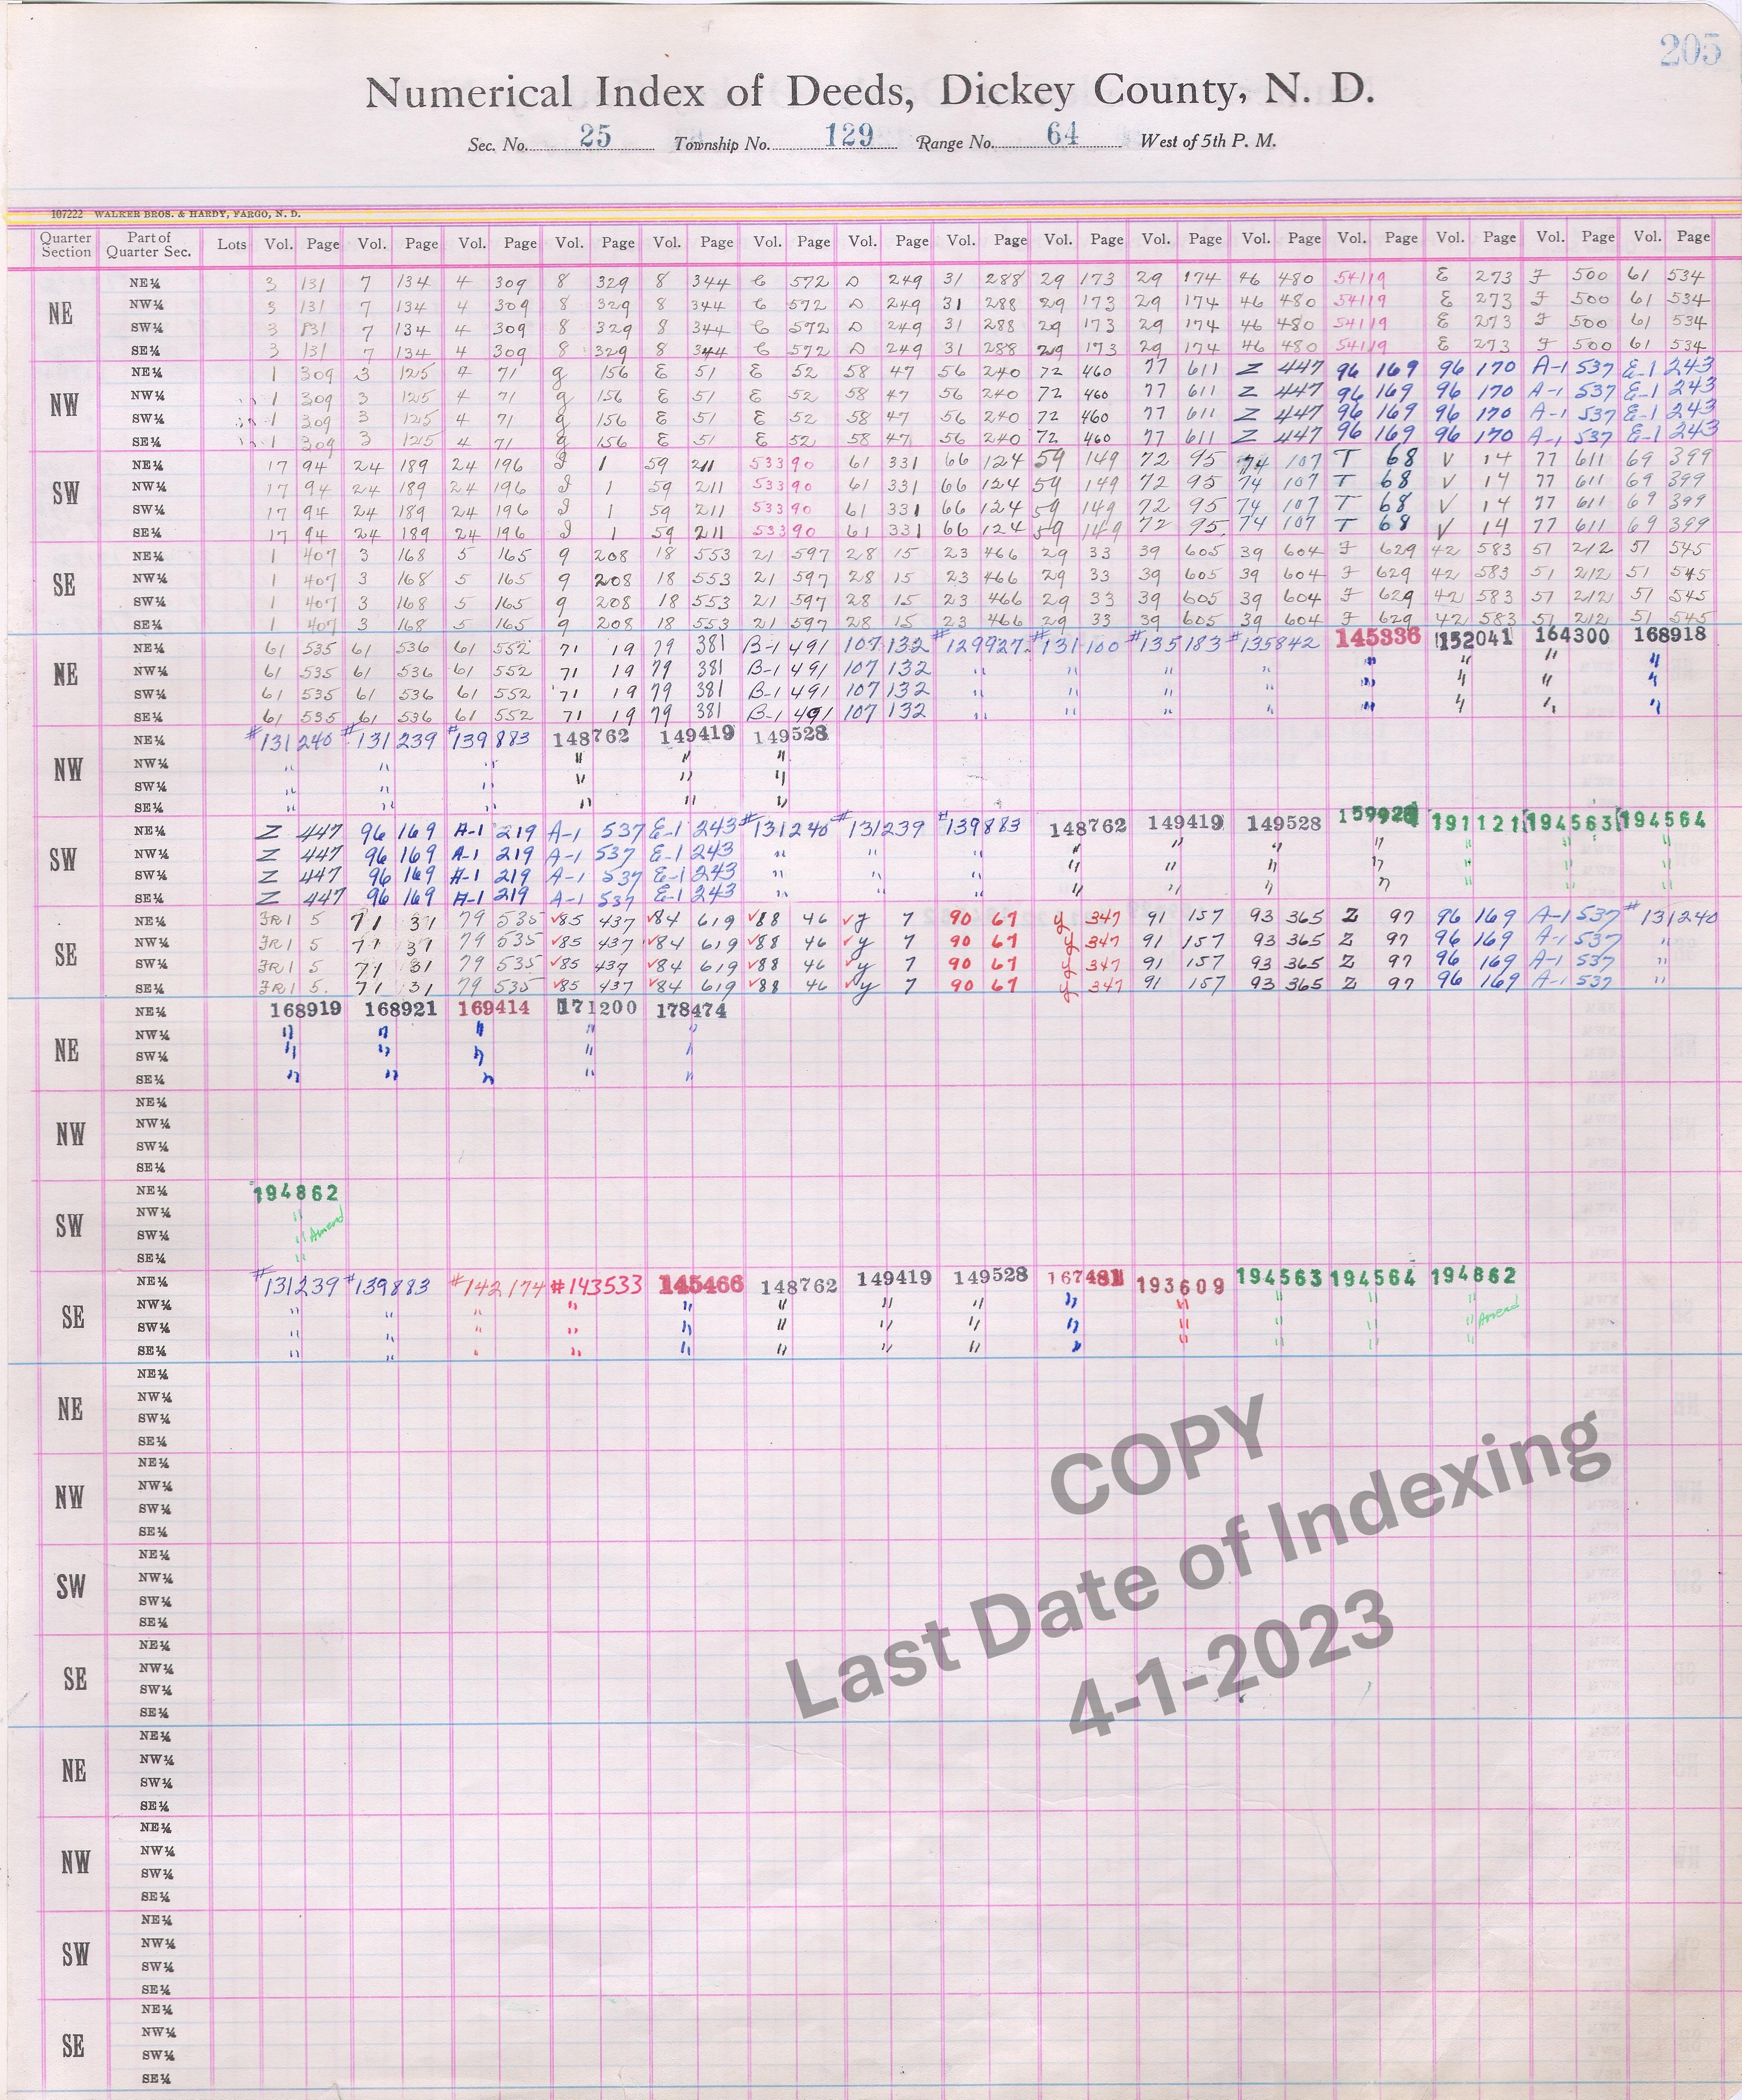 205
Numerical Index of Deeds, Dickey County, N. D.
Sec. No. 25 Township No. 129 Range No. 64 West of 5th P. M.
107222 WALKER BROS. & HARDY, FARGO, N. D.
Quarter Section Part of Quarter Sec. Lots Vol. Page Vol. Page Vol. Page Vol. Page Vol. Page Vol. Page Vol. Page Vol. Page Vol. Page Vol. Page Vol. Page Vol. Page Vol. Page Vol. Page Vol. Page
NE NE¼ 3 131 7 134 4 309 8 329 8 344 C 572 D 249 31 288 29 173 29 174 46 480 54119 E 273 F 500 61 534
NW¼ 3 131 7 134 4 309 8 329 8 344 C 572 D 249 31 288 29 173 29 174 46 480 54119 E 273 F 500 61 534
SW¼ 3 131 7 134 4 309 8 329 8 344 C 572 D 249 31 288 29 173 29 174 46 480 54119 E 273 F 500 61 534
SE¼ 3 131 7 134 4 309 8 329 8 344 C 572 D 249 31 288 29 173 29 174 46 480 54119 E 273 F 500 61 534
NW NE¼ 1 309 3 125 4 71 g 156 E 51 E 52 58 47 56 240 72 460 77 611 Z 447 96 169 96 170 A-1 537 E-1 243
NW¼ 1 309 3 125 4 71 g 156 E 51 E 52 58 47 56 240 72 460 77 611 Z 447 96 169 96 170 A-1 537 E-1 243
SW¼ 1 309 3 125 4 71 g 156 E 51 E 52 58 47 56 240 72 460 77 611 Z 447 96 169 96 170 A-1 537 E-1 243
SE¼ 1 309 3 125 4 71 g 156 E 51 E 52 58 47 56 240 72 460 77 611 Z 447 96 169 96 170 A-1 537 E-1 243
SW NE¼ 17 94 24 189 24 196 I 1 59 211 53390 61 331 66 124 59 149 72 95 74 107 T 68 V 14 77 611 69 399
NW¼ 17 94 24 189 24 196 I 1 59 211 53390 61 331 66 124 59 149 72 95 74 107 T 68 V 14 77 611 69 399
SW¼ 17 94 24 189 24 196 I 1 59 211 53390 61 331 66 124 59 149 72 95 74 107 T 68 V 14 77 611 69 399
SE¼ 17 94 24 189 24 196 I 1 59 211 53390 61 331 66 124 59 149 72 95 74 107 T 68 V 14 77 611 69 399
SE NE¼ 1 407 3 168 5 165 9 208 18 553 21 597 28 15 23 466 29 33 39 605 39 604 F 629 42 583 51 212 51 545
NW¼ 1 407 3 168 5 165 9 208 18 553 21 597 28 15 23 466 29 33 39 605 39 604 F 629 42 583 51 212 51 545
SW¼ 1 407 3 168 5 165 9 208 18 553 21 597 28 15 23 466 29 33 39 605 39 604 F 629 42 583 51 212 51 545
SE¼ 1 407 3 168 5 165 9 208 18 553 21 597 28 15 23 466 29 33 39 605 39 604 F 629 42 583 51 212 51 545
NE NE¼ 61 535 61 536 61 552 71 19 79 381 B-1 491 107 132 #129927 #131100 #135183 #135842 145336 152041 164300 168918
NW¼ 61 535 61 536 61 552 71 19 79 381 B-1 491 107 132 " " " " " " " "
SW¼ 61 535 61 536 61 552 71 19 79 381 B-1 491 107 132 " " " " " " " "
SE¼ 61 535 61 536 61 552 71 19 79 381 B-1 491 107 132 " " " " " " " "
NW NE¼ #131240 #131239 #139883 148762 149419 149528
NW¼ " " " " " "
SW¼ " " " " " "
SE¼ " " " " " "
SW NE¼ Z 447 96 169 A-1 219 A-1 537 E-1 243 #131240 #131239 #139883 148762 149419 149528 191121 194563 194564
NW¼ Z 447 96 169 A-1 219 A-1 537 E-1 243 " " " " " " " " " "
SW¼ Z 447 96 169 A-1 219 A-1 537 E-1 243 " " " " " " " " " "
SE¼ Z 447 96 169 A-1 219 A-1 537 E-1 243 " " " " " " " " " "
SE NE¼ JR1 5 71 31 79 535 √85 437 √84 619 √88 46 √y 7 90 67 y 347 91 157 93 365 Z 97 96 169 A-1 537 #131240
NW¼ JR1 5 71 31 79 535 √85 437 √84 619 √88 46 √y 7 90 67 y 347 91 157 93 365 Z 97 96 169 A-1 537 "
SW¼ JR1 5 71 31 79 535 √85 437 √84 619 √88 46 √y 7 90 67 y 347 91 157 93 365 Z 97 96 169 A-1 537 "
SE¼ JR1 5 71 31 79 535 √85 437 √84 619 √88 46 √y 7 90 67 y 347 91 157 93 365 Z 97 96 169 A-1 537 "
NE NE¼ 168919 168921 169414 171200 178474
NW¼ " " " " "
SW¼ " " " " "
SE¼ " " " " "
NW NE¼
NW¼
SW¼
SE¼
SW NE¼ 194862
NW¼ "
SW¼ " Amend
SE¼ "
SE NE¼ #131239 #139883 #142174 #143533 145466 148762 149419 149528 167481 193609 194563 194564 194862
NW¼ " " " " " " " " " " " " "
SW¼ " " " " " " " " " " " " " Amend
SE¼ " " " " " " " " " " " " "
NE NE¼
NW¼
SW¼
SE¼
NW NE¼
NW¼
SW¼
SE¼
SW NE¼
NW¼
SW¼
SE¼
SE NE¼
NW¼
SW¼
SE¼
NE NE¼
NW¼
SW¼
SE¼
NW NE¼
NW¼
SW¼
SE¼
SW NE¼
NW¼
SW¼
SE¼
SE NE¼
NW¼
SW¼
SE¼
COPY
Last Date of Indexing
4-1-2023